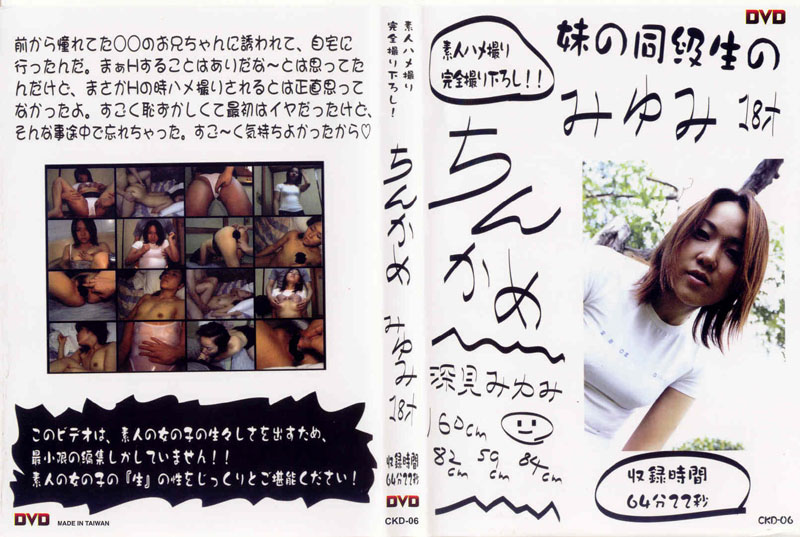 前から憧れてた〇〇のお兄ちゃんに誘われて、自宅に
行ったんだ。まぁHすることはありだな～とは思ってた
んだけど、まさかHの時ハメ撮りされるとは正直思って
なかったよ。すごく恥ずかしくて最初はイヤだったけど、
そんな事途中で忘れちゃった。すご～く気持ちよかったから♡
このビデオは、素人の女の子の生々しさを出すため、
最小限の編集しかしていません！！
素人の女の子の『生』の性をじっくりとご堪能ください！
DVD
MADE IN TAIWAN
素人ハメ撮り
完全撮り下ろし！
ちんかめ
みゆみ
18才
収録時間
64分22秒
DVD
CKD-06
DVD
素人ハメ撮り
完全撮り下ろし！！
妹の同級生の
みゆみ 18才
ちん
かめ
深見みゆみ
160cm
82cm 59cm 84cm
収録時間
64分22秒
CKD-06